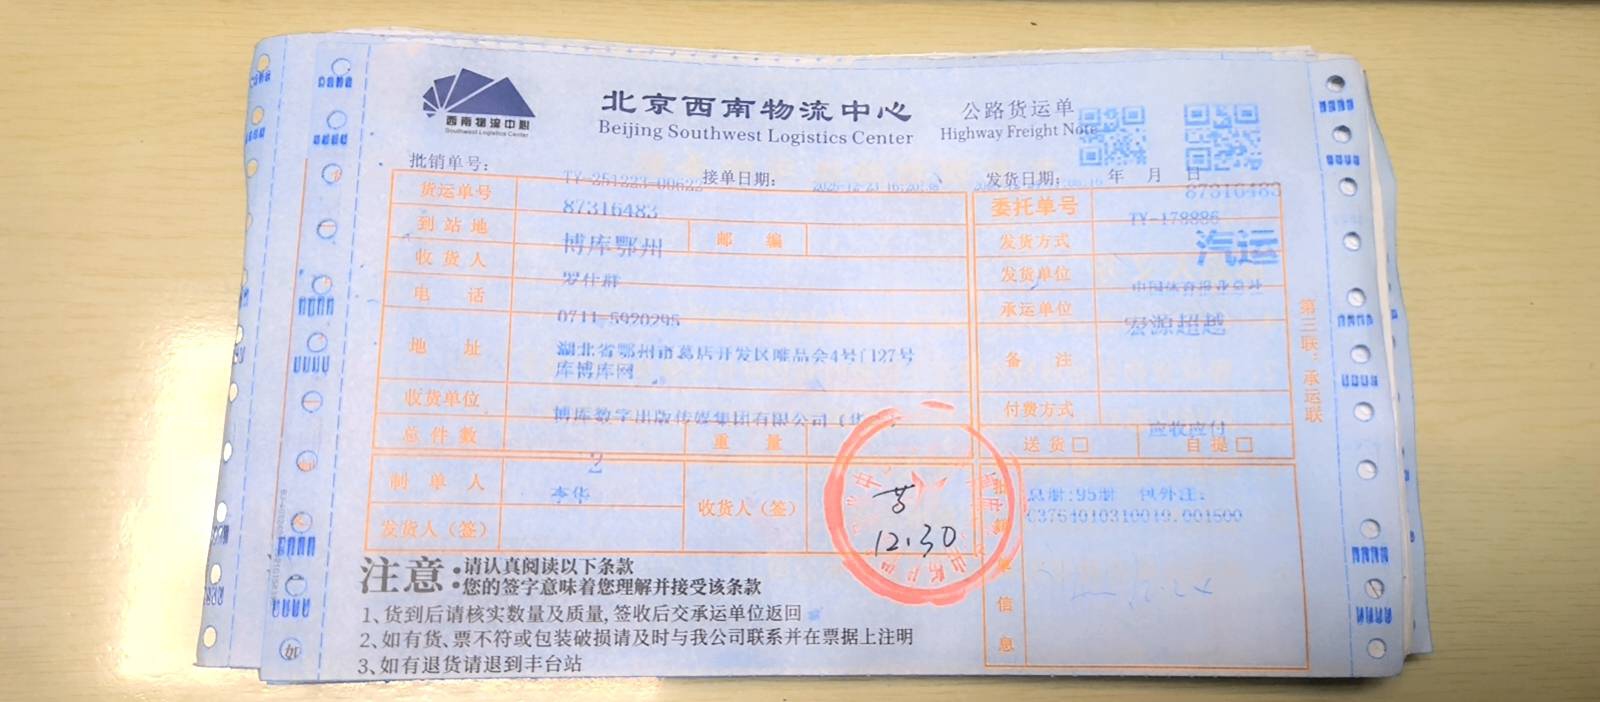 西南物流中心
Southwest Logistics Center
北京西南物流中心
Beijing Southwest Logistics Center
公路货运单
Highway Freight Note
批销单号:
TY-251223-00622
接单日期:
发货日期: 年 月 日
87316483
货运单号
87316483
委托单号
TY-178886
到站地
博库鄂州
邮 编
发货方式
汽运
收货人
罗仕群
发货单位
中国体育报业总社
电 话
0711-5920295
承运单位
宏源超越
地 址
湖北省鄂州市葛店开发区唯品会4号门127号
库博库网
备 注
收货单位
博库数字出版传媒集团有限公司
付费方式
应收应付
总件数
2
重 量
送货□
自提□
制单人
李华
收货人(签)
发货人(签)
12.30
总册:95册 包外注:
C3764010310049.001500
单
信
息
第三联:承运联
注意:
请认真阅读以下条款
您的签字意味着您理解并接受该条款
1、货到后请核实数量及质量,签收后交承运单位返回
2、如有货、票不符或包装破损请及时与我公司联系并在票据上注明
3、如有退货请退到丰台站